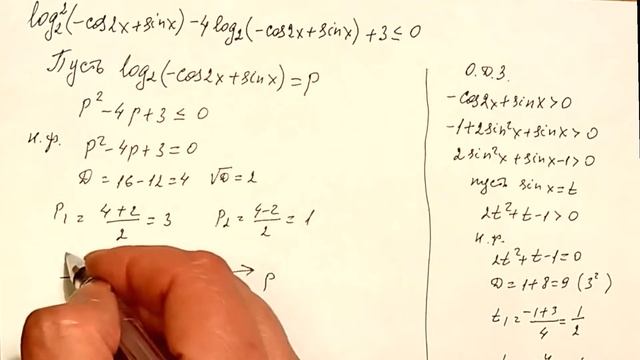 log₂²(-cos2x+sinx)-4log₂(-cos2x+sinx)+3≤0
Пусть log₂(-cos2x+sinx)=p
p²-4p+3≤0
н.ф. p²-4p+3=0
D=16-12=4 √D=2
p₁=(4+2)/2=3 p₂=(4-2)/2=1
p
О.Д.З.
-cos2x+sinx>0
-1+2sin²x+sinx>0
2sin²x+sinx-1>0
пусть sinx=t
2t²+t-1>0
н.ф.
2t²+t-1=0
D=1+8=9 (3²)
t₁=(-1+3)/4=1/2